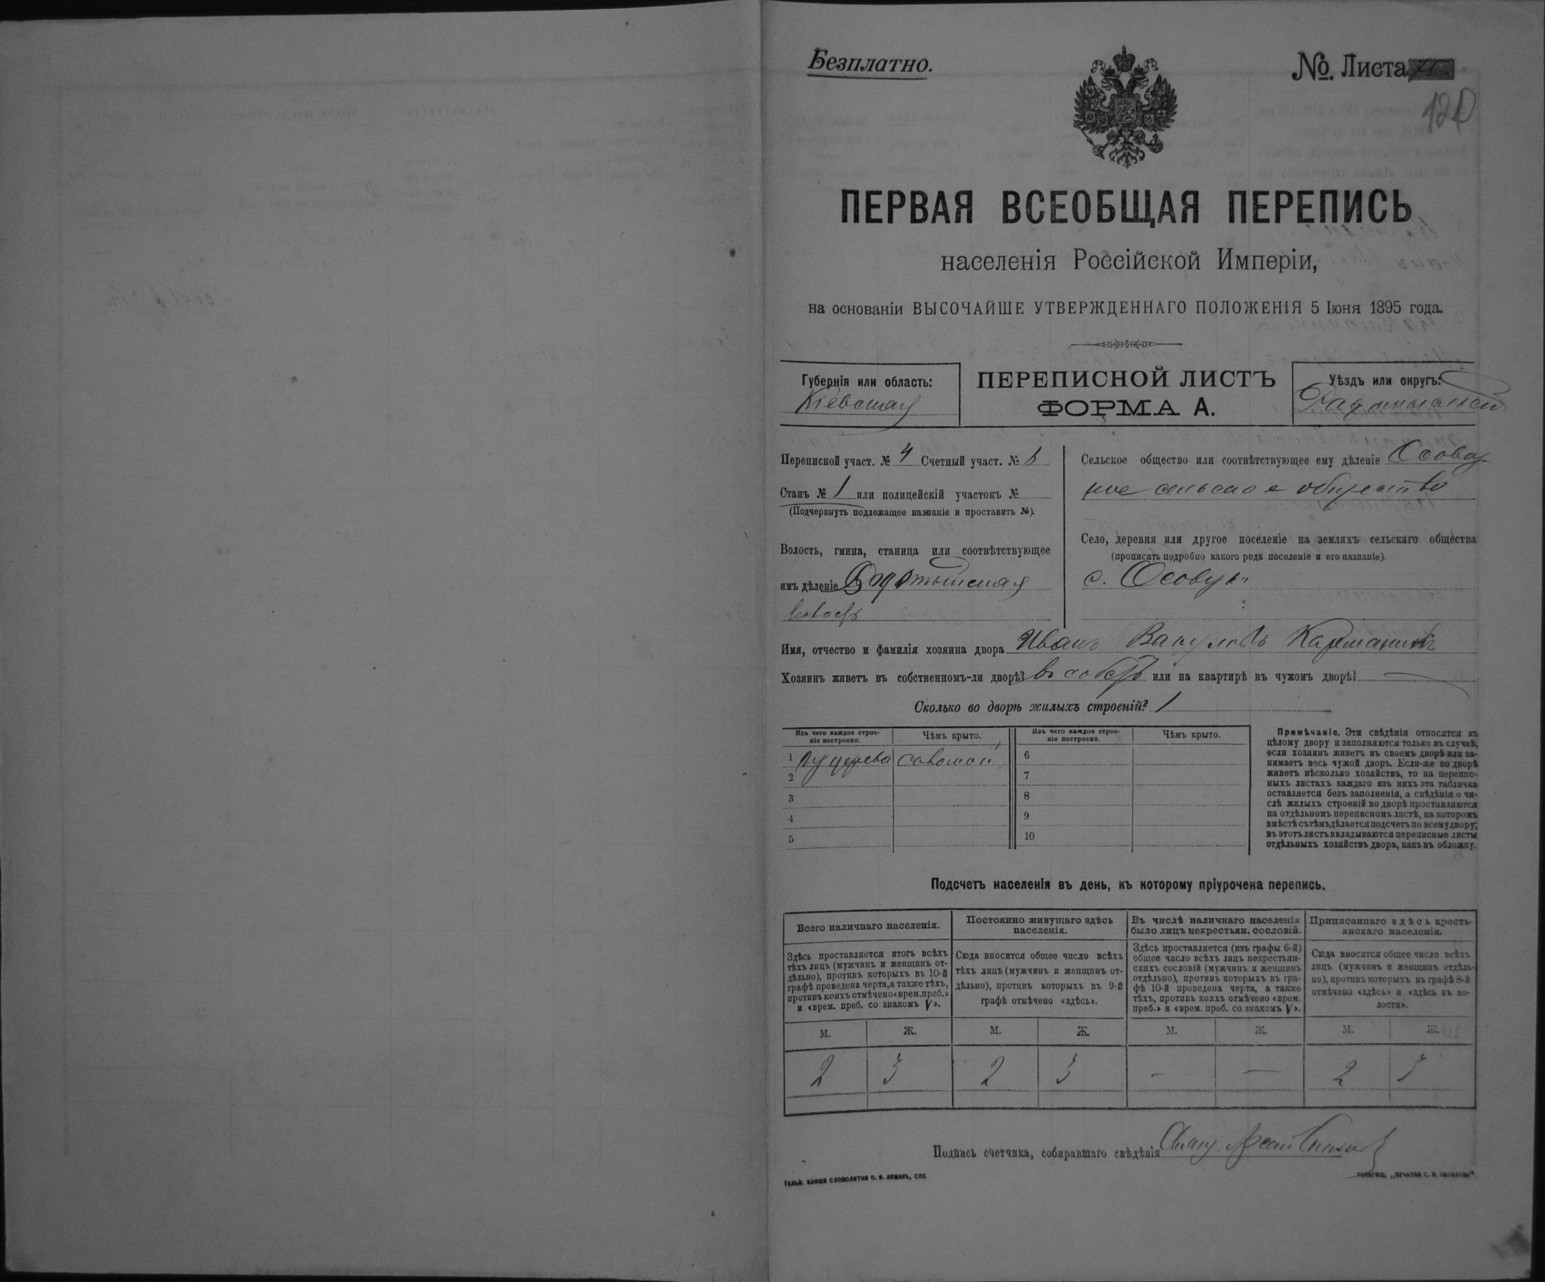 Безплатно.
№. Листа
120
ПЕРВАЯ ВСЕОБЩАЯ ПЕРЕПИСЬ
населенія Россійской Имперіи,
на основаніи ВЫСОЧАЙШЕ УТВЕРЖДЕННАГО ПОЛОЖЕНІЯ 5 Іюня 1895 года.
Губернія или область:
Кіевская
ПЕРЕПИСНОЙ ЛИСТЪ
ФОРМА А.
Уѣздъ или округъ:
Радомысльскій
Переписной участ. № 4 Счетный участ. №
Станъ № 1 или полицейскій участокъ №
(Подчеркнуть подлежащее названіе и проставить №).
Волость, гмина, станица или соотвѣтствующее
имъ дѣленіе
Сельское общество или соотвѣтствующее ему дѣленіе Осовец
кое сельское общество
Село, деревня или другое поселеніе на земляхъ сельскаго общества
(прописать подробно какого рода поселеніе и его названіе).
с. Осовцы
Имя, отчество и фамилія хозяина двора Иванъ Вакуловъ
Хозяинъ живетъ въ собственномъ-ли дворѣ? въ собст или на квартирѣ въ чужомъ дворѣ?
Сколько во дворѣ жилыхъ строеній? 1
Изъ чего каждое строе-
ніе построено.
Чѣмъ крыто.
Изъ чего каждое строе-
ніе построено.
Чѣмъ крыто.
1 изъ дерева соломой
2
3
4
5
6
7
8
9
10
Примѣчаніе. Эти свѣдѣнія относятся къ
цѣлому двору и заполняются только въ случаѣ,
если хозяинъ живетъ въ своемъ дворѣ или за-
нимаетъ весь чужой дворъ. Если-же во дворѣ
живетъ нѣсколько хозяйствъ, то на перепис-
ныхъ листахъ каждаго изъ нихъ эта табличка
оставляется безъ заполненія, а свѣдѣнія о чи-
слѣ жилыхъ строеній во дворѣ проставляются
на отдѣльномъ переписномъ листѣ, на которомъ
вмѣстѣ съ тѣмъ дѣлается подсчетъ по всему двору;
въ этотъ листъ вкладываются переписные листы
отдѣльныхъ хозяйствъ двора, какъ въ обложку.
Подсчетъ населенія въ день, къ которому пріурочена перепись.
Всего наличнаго населенія.
Здѣсь проставляется итогъ всѣхъ
тѣхъ лицъ (мужчинъ и женщинъ от-
дѣльно), противъ которыхъ въ 10-й
графѣ проведена черта, а также тѣхъ,
противъ коихъ отмѣчено «врем. преб.»
и «врем. преб. со знакомъ V».
Постоянно живущаго здѣсь
населенія.
Сюда вносится общее число всѣхъ
тѣхъ лицъ (мужчинъ и женщинъ от-
дѣльно), противъ которыхъ въ 9-й
графѣ отмѣчено «здѣсь».
Въ числѣ наличнаго населенія
было лицъ некрестьян. сословій.
Здѣсь проставляется (изъ графы 6-й)
общее число всѣхъ лицъ некрестьян-
скихъ сословій (мужчинъ и женщинъ
отдѣльно), противъ которыхъ въ гра-
фѣ 10-й проведена черта, а также
тѣхъ, противъ коихъ отмѣчено «врем.
преб.» и «врем. преб. со знакомъ V».
Приписаннаго здѣсь кресть-
янскаго населенія.
Сюда вносится общее число всѣхъ
лицъ (мужчинъ и женщинъ отдѣль-
но), противъ которыхъ въ графѣ 8-й
отмѣчено «здѣсь» и «здѣсь въ во-
лости».
М. Ж. М. Ж. М. Ж. М. Ж.
2 3 2 3 — — 2 3
Подпись счетчика, собиравшаго свѣдѣнія